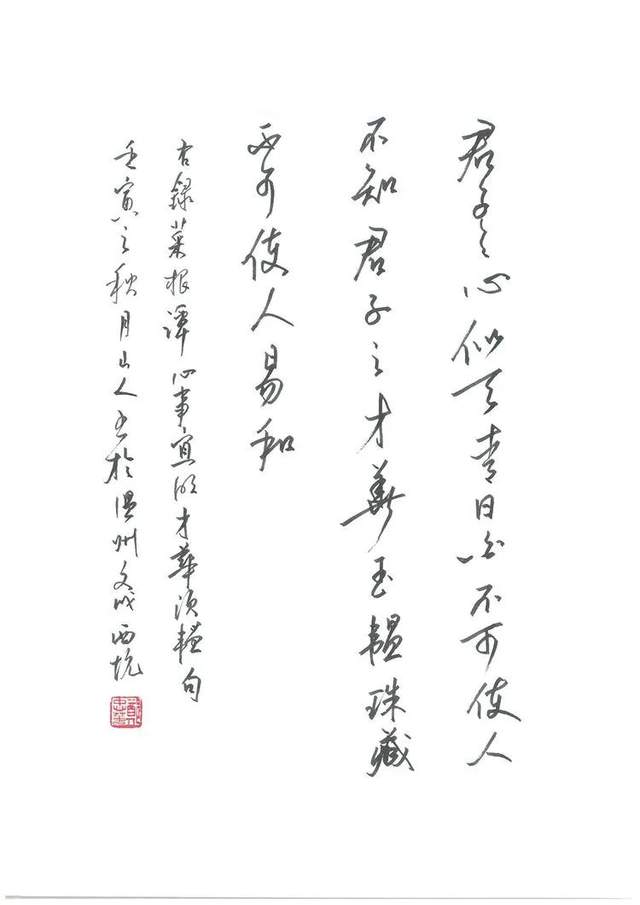 君子之心似天青日白不可使人
不知君子之才華玉韞珠藏
不可使人易知
右錄菜根譚心事宜明才華須韞句
壬寅之秋月山人書於溫州文成西坑